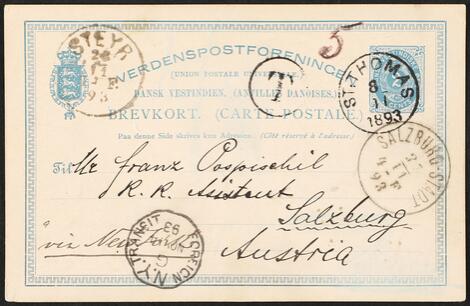 STEYR
5
VERDENSPOSTFORENINGEN
(UNION POSTALE UNIVERSELLE.)
DANSK VESTINDIEN. (ANTILLES DANOISES.)
BREVKORT. (CARTE-POSTALE.)
Paa denne Side skrives kun Adressen. (Côté réservé à l'adresse.)
T
ST. THOMAS
8
11
1893
SALZBURG-STADT
Til Mr Franz Pospischil
K. K. Assistent
Salzburg
"via New
Austria
N.Y. TRANSIT FOREIGN
93
G